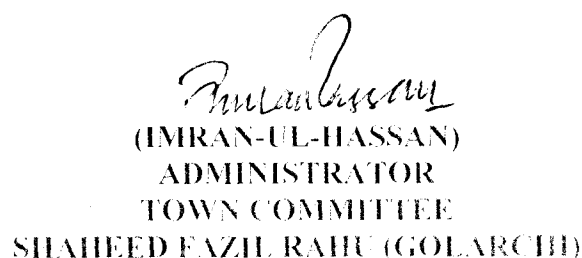 (IMRAN-UL-HASSAN)
ADMINISTRATOR
TOWN COMMITTEE
SHAHEED FAZIL RAHU (GOLARCHI)